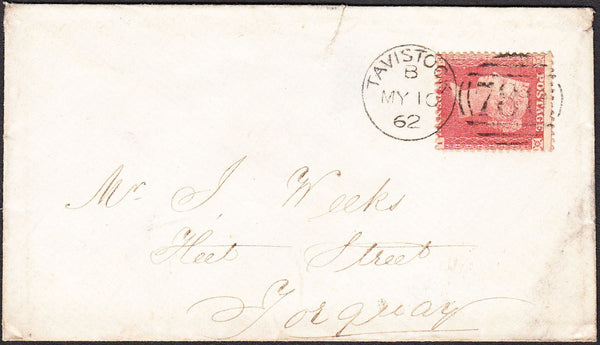 TAVISTOCK
B
MY 10
62
POSTAGE
Mr. J. Weeks
Fleet Street
Torquay